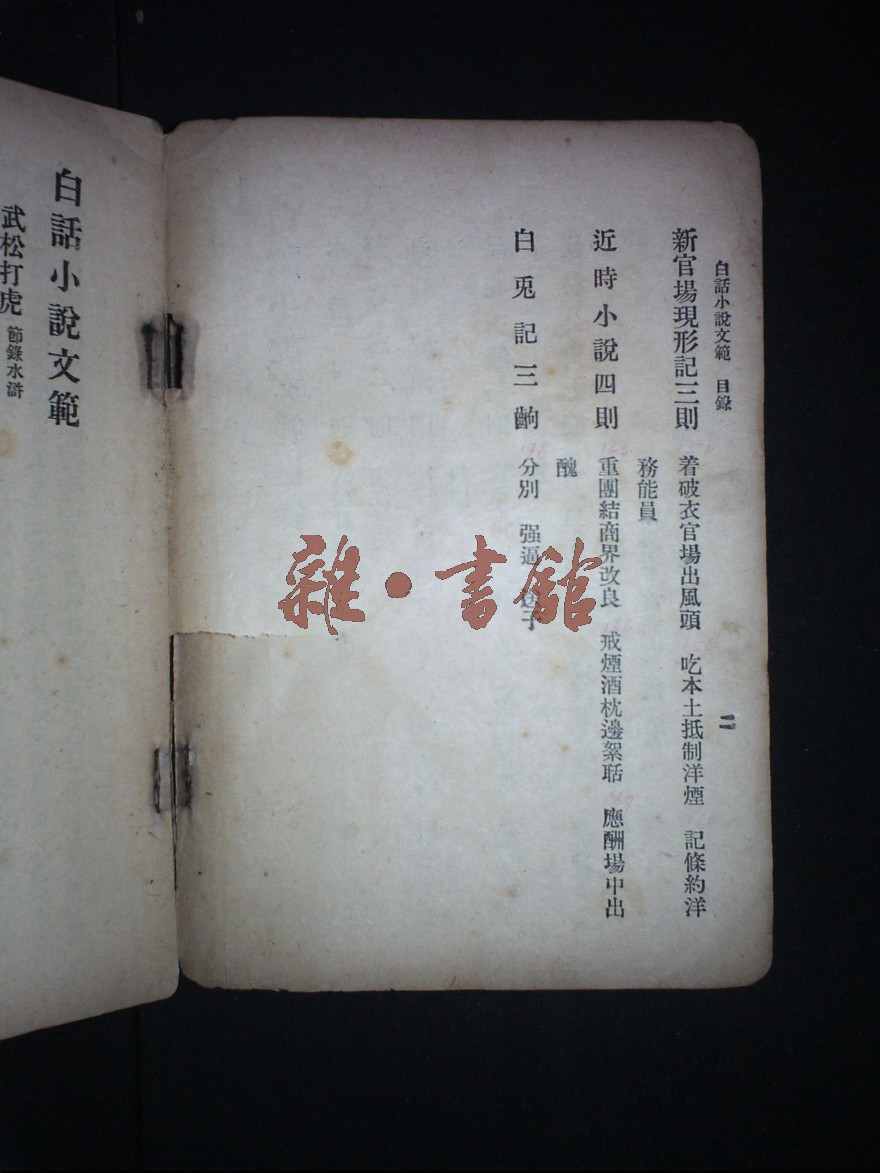 白話小說文範　目錄
二
新官場現形記三則　着破衣官場出風頭　吃本土抵制洋煙　記條約洋
務能員
近時小說四則　重團結商界改良　戒煙酒枕邊絮聒　應酬場中出
醜
白兎記三齣　分別　强逼　送子
白話小說文範
武松打虎　節錄水滸
雜·書館